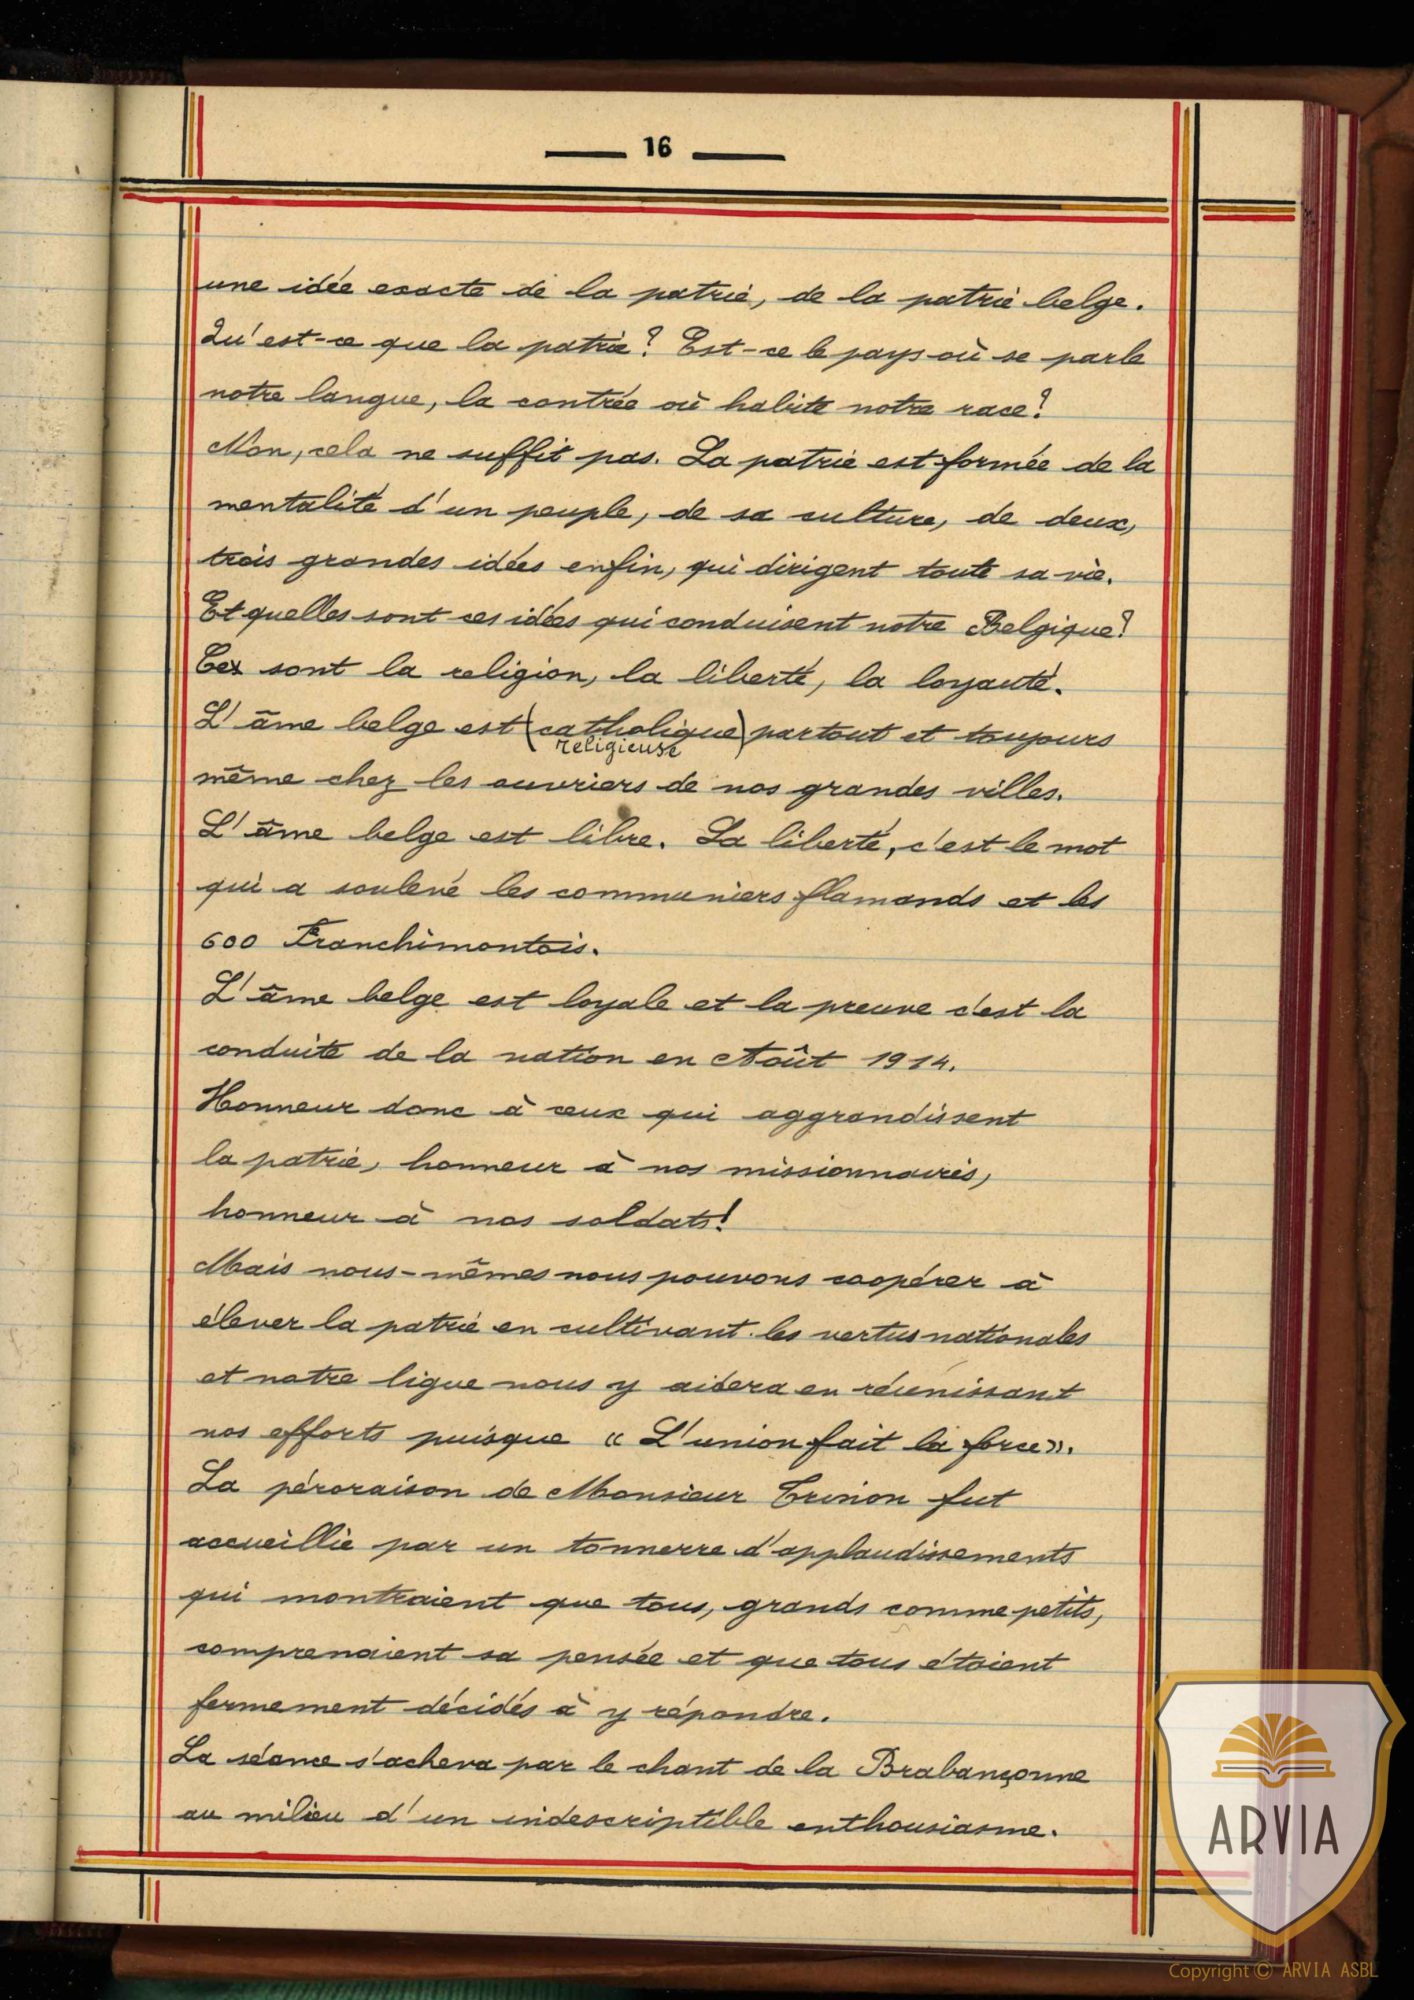 16
une idée exacte de la patrie, de la patrie belge.
Qu'est-ce que la patrie? Est-ce le pays où se parle
notre langue, la contrée où habite notre race?
Non, cela ne suffit pas. La patrie est formée de la
mentalité d'un peuple, de sa culture, de deux,
trois grandes idées enfin, qui dirigent toute sa vie.
Et quelles sont ces idées qui conduisent notre Belgique?
Ces sont la religion, la liberté, la loyauté.
L'âme belge est (catholique) partout et toujours
religieuse
même chez les ouvriers de nos grandes villes.
L'âme belge est libre. La liberté, c'est le mot
qui a soulevé les communiers flamands et les
600 Franchimontois.
L'âme belge est loyale et la preuve c'est la
conduite de la nation en Août 1914.
Honneur donc à ceux qui aggrandissent
la patrie, honneur à nos missionnaires,
honneur à nos soldats!
Mais nous-mêmes nous pouvons coopérer à
élever la patrie en cultivant les vertus nationales
et notre ligue nous y aidera en réunissant
nos efforts puisque « L'union fait la force ».
La péroraison de Monsieur fut
accueillie par un tonnerre d'applaudissements
qui montraient que tous, grands comme petits,
comprenaient sa pensée et que tous étaient
fermement décidés à y répondre.
La séance s'acheva par le chant de la Brabançonne
au milieu d'un indescriptible enthousiasme.
ARVIA
Copyright © ARVIA ASBL